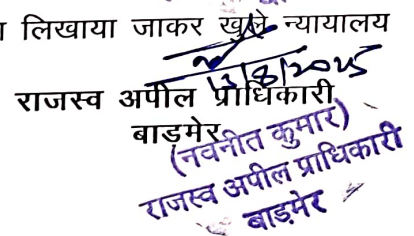 लिखाया जाकर खुले न्यायालय
13/8/2025
राजस्व अपील प्राधिकारी
बाड़मेर
(नवनीत कुमार)
राजस्व अपील प्राधिकारी
बाड़मेर